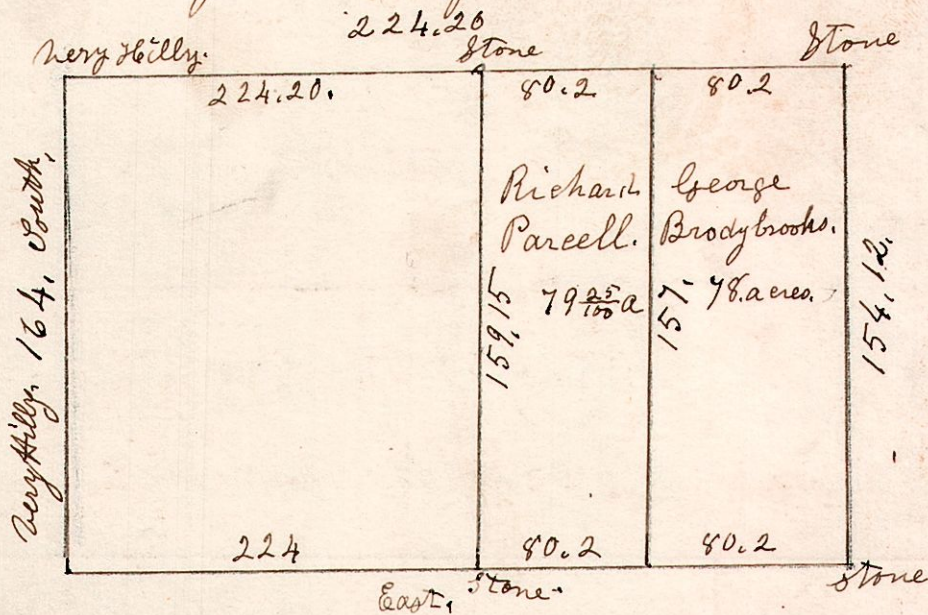 224.20
Very Hilly. Stone Stone
224.20. 80.2 80.2
Very Hilly. 164. South.
Richard
Parcell.
79 25/100 a
159.15
George
Brodybrooks.
78. acres.
157.
154.12.
224 80.2 80.2
East, Stone. Stone